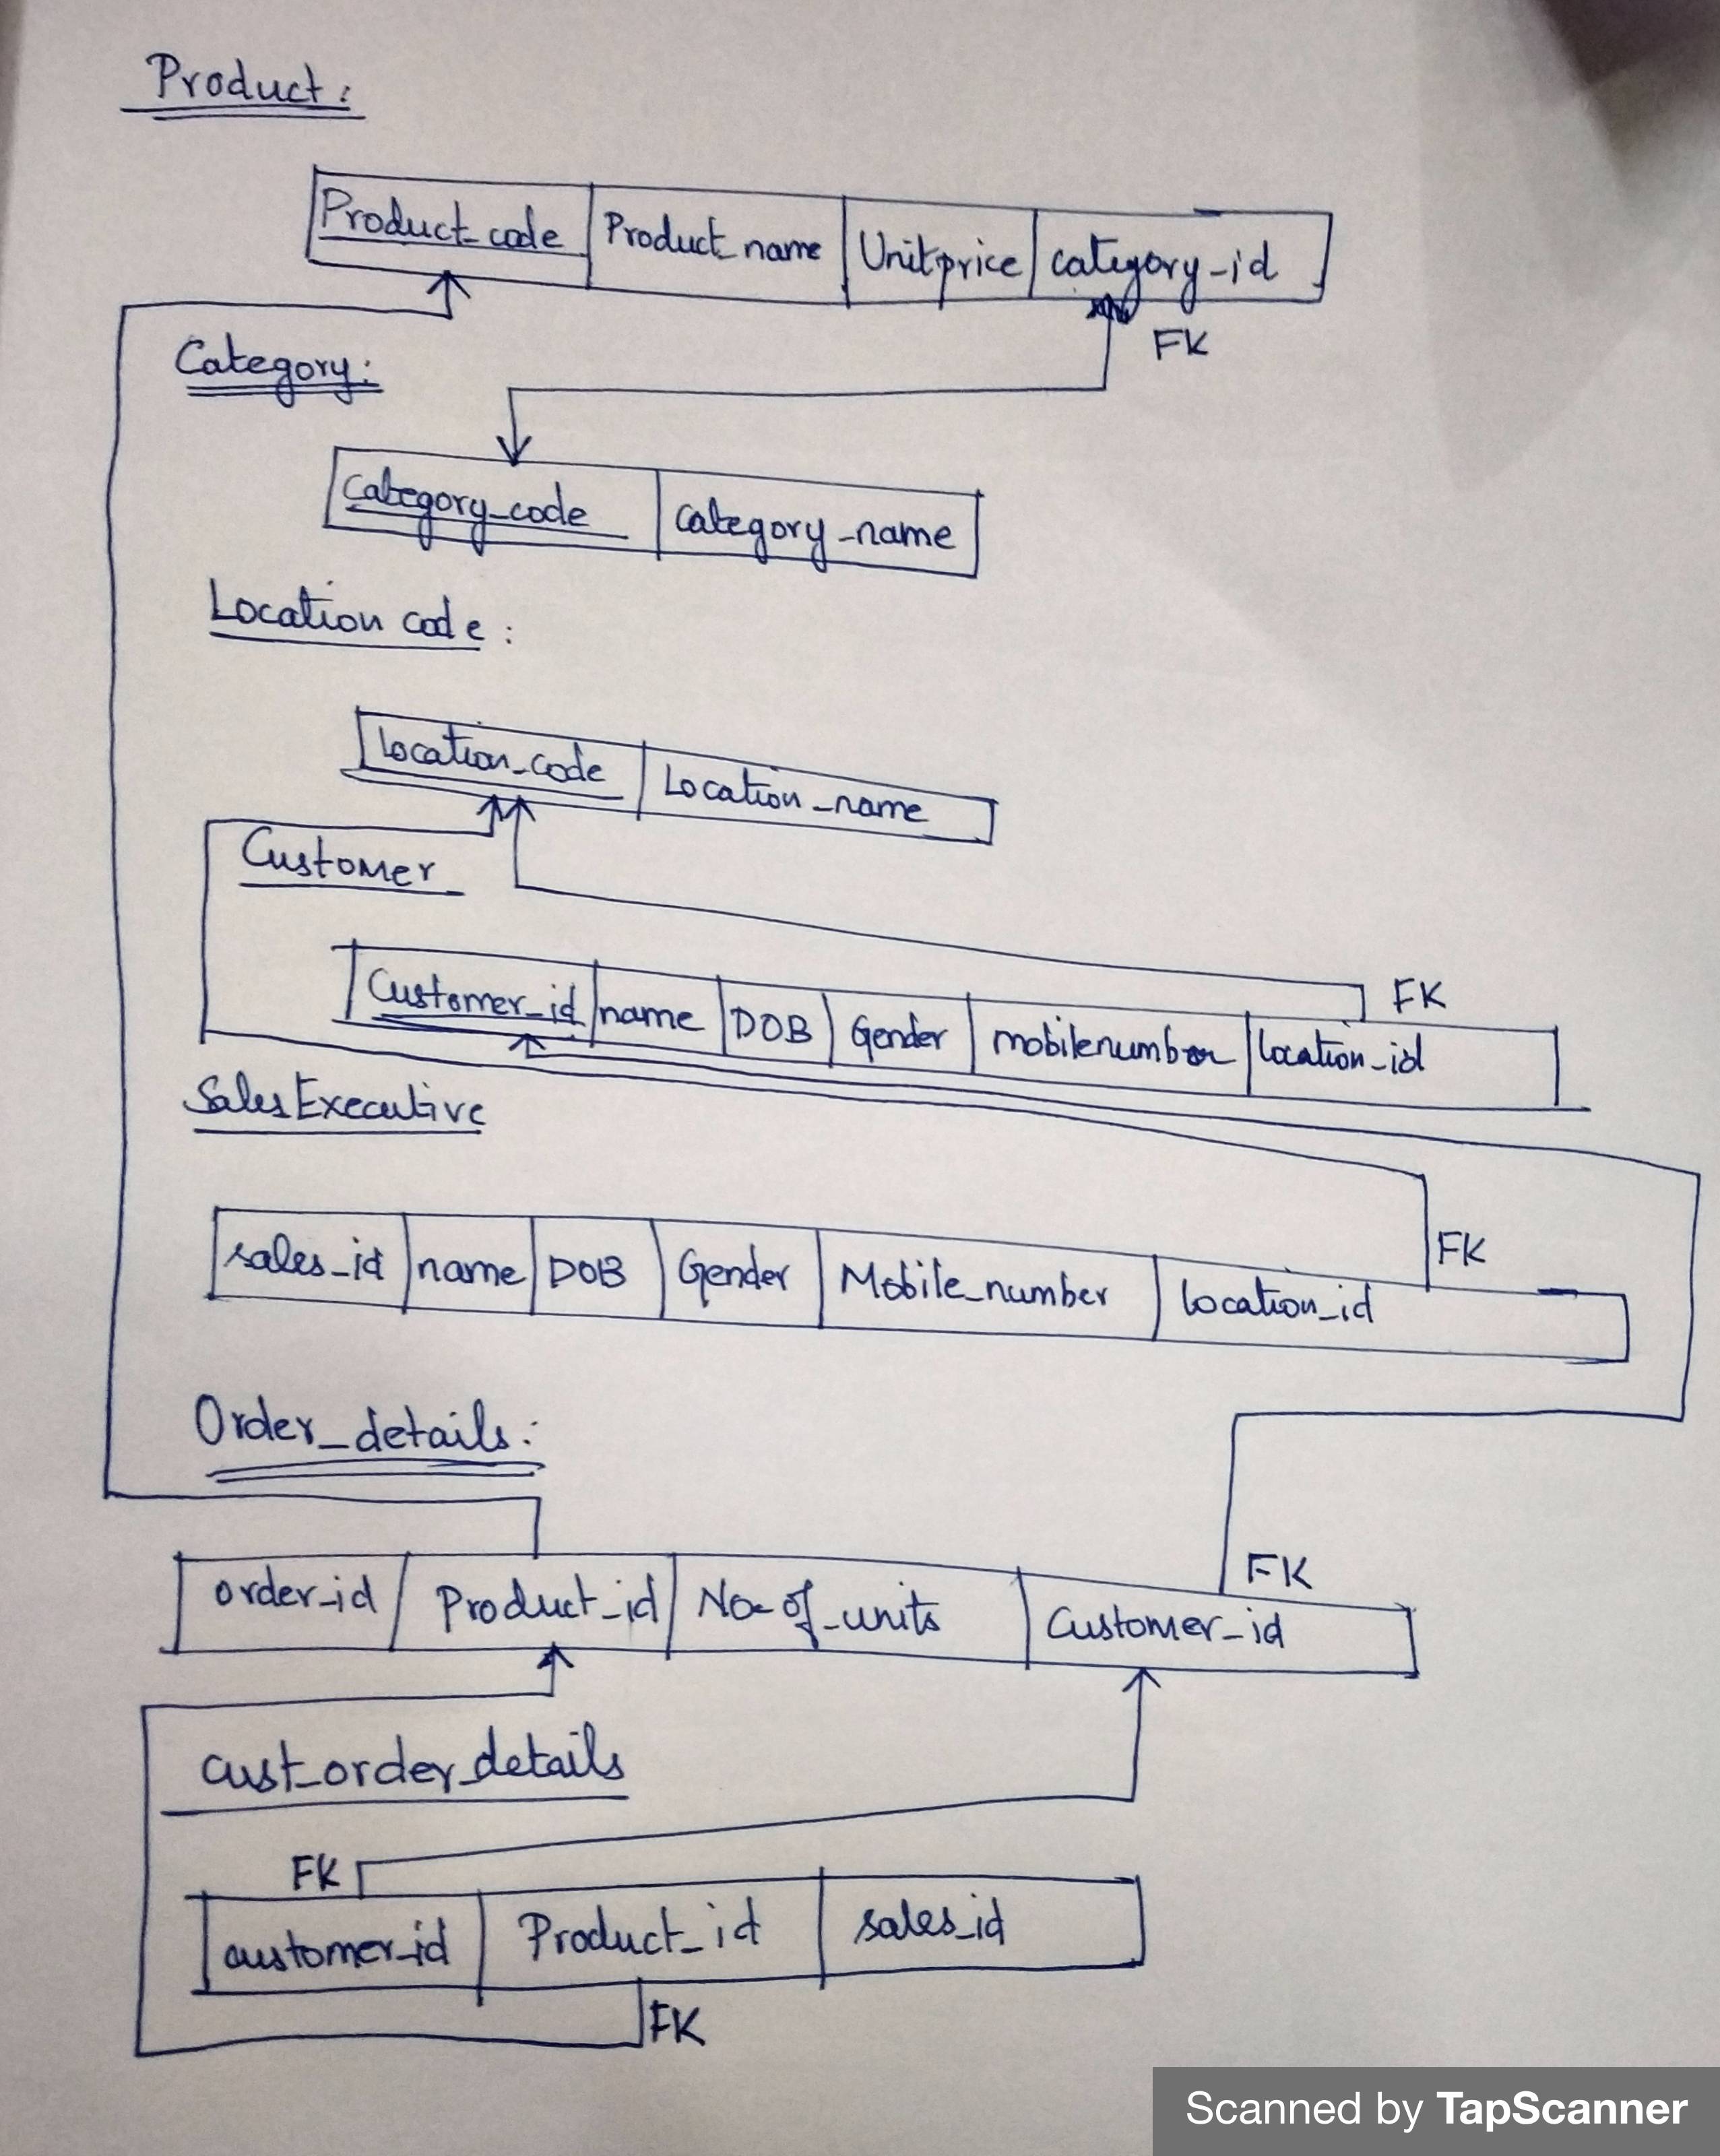 Product:
Product_code Product_name Unitprice category_id
FK
Category:
Category_code category_name
Location code:
Location_code Location_name
Customer
FK
Customer_id name DOB Gender mobilenumber location_id
SalesExecutive
FK
sales_id name DOB Gender Mobile_number location_id
Order_details:
FK
order_id Product_id No_of_units Customer_id
cust_order_details
FK
customer_id Product_id sales_id
FK
Scanned by TapScanner